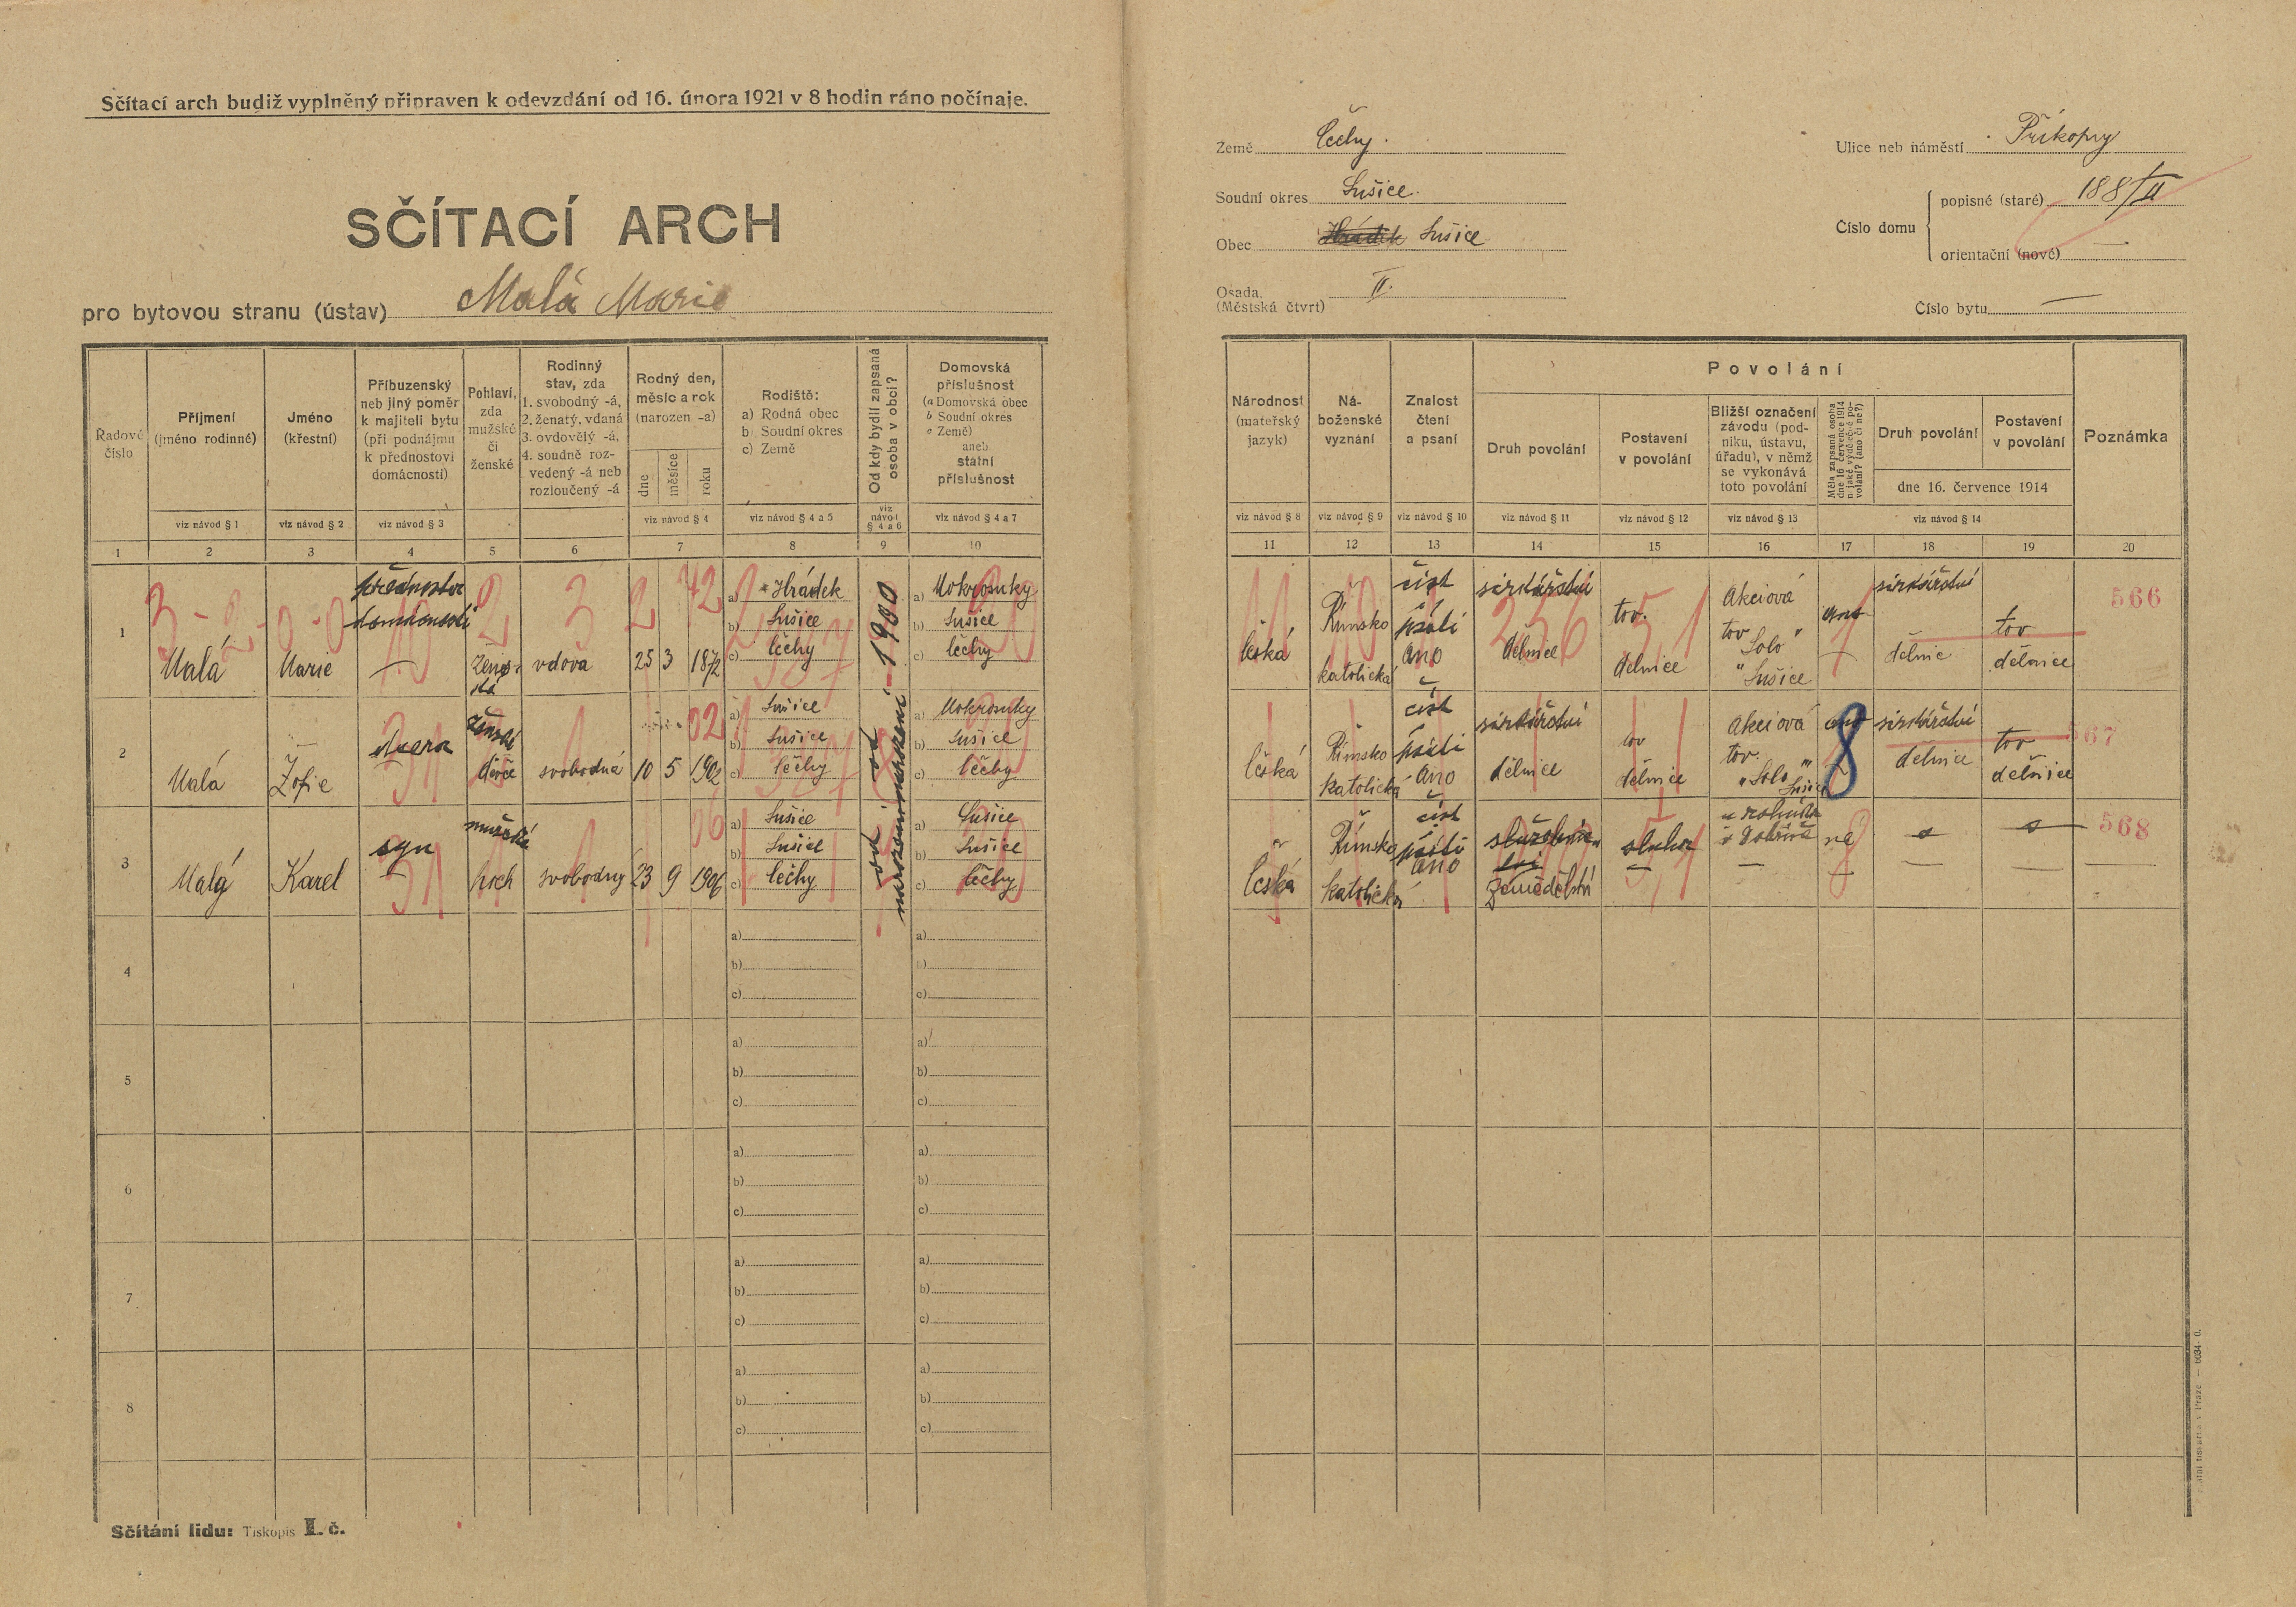 Sčítací arch budiž vyplněný připraven k odevzdání od 16. února 1921 v 8 hodin ráno počínaje.
SČÍTACÍ ARCH
pro bytovou stranu (ústav) Malá Marie
Země Čechy.
Soudní okres Sušice.
Obec Hrádek Sušice
Osada, (Městská čtvrť) II.
Ulice neb náměstí Příkopy
Číslo domu
popisné (staré) 188/II
orientační (nové)
Číslo bytu —
Řadové číslo
Příjmení (jméno rodinné)
Jméno (křestní)
Příbuzenský neb jiný poměr k majiteli bytu (při podnájmu k přednostovi domácnosti)
Pohlaví, zda mužské či ženské
Rodinný stav, zda 1. svobodný -á, 2. ženatý, vdaná 3. ovdovělý -á, 4. soudně rozvedený -á neb rozloučený -á
Rodný den, měsíc a rok (narozen -a)
dne
měsíce
roku
Rodiště:
a) Rodná obec
b) Soudní okres
c) Země
Od kdy bydlí zapsaná osoba v obci?
Domovská příslušnost
(a Domovská obec
b Soudní okres
c Země)
aneb
státní příslušnost
viz návod § 1
viz návod § 2
viz návod § 3
viz návod § 4
viz návod § 4 a 5
viz návod § 4 a 6
viz návod § 4 a 7
1 2 3 4 5 6 7 8 9 10
Národnost (mateřský jazyk)
Náboženské vyznání
Znalost čtení a psaní
Povolání
Druh povolání
Postavení v povolání
Bližší označení závodu (podniku, ústavu, úřadu), v němž se vykonává toto povolání
Měla zapsaná osoba dne 16. července 1914 nějaké výdělečné povolání? (ano či ne?)
Druh povolání
Postavení v povolání
dne 16. července 1914
Poznámka
viz návod § 8
viz návod § 9
viz návod § 10
viz návod § 11
viz návod § 12
viz návod § 13
viz návod § 14
11 12 13 14 15 16 17 18 19 20
1
Malá
Marie
přednosta
domácnosti
—
ženská
vdova
25 3 1872
a) Hrádek
b) Sušice
c) Čechy
1900
a) Mokrosuky
b) Sušice
c) Čechy
česká
Římsko
katolická
číst
psáti
ano
sirkářství
dělnice
tov.
dělnice
Akciová
tov
"Solo"
Sušice
ano
sirkářství
dělnic
tov
dělnice
566
2
Malá
Žofie
dcera
ženské
děvče
svobodná
10 5 1902
a) Sušice
b) Sušice
c) Čechy
od
narození
a) Mokrosuky
b) Sušice
c) Čechy
česká
Římsko
katolická
číst
psáti
ano
sirkářství
dělnice
tov
dělnice
Akciová
tov.
"Solo"
Sušice
ano
8
sirkářství
dělnice
tov
dělnice
567
3
Malý
Karel
syn
mužské
hoch
svobodný
23 9 1906
a) Sušice
b) Sušice
c) Čechy
od
narození
a) Sušice
b) Sušice
c) Čechy
česká
Římsko
katolická
číst
psáti
ano
zemědělství
sluha
u rolníka
ne
568
4
a)
b)
c)
a)
b)
c)
5
a)
b)
c)
a)
b)
c)
6
a)
b)
c)
a)
b)
c)
7
a)
b)
c)
a)
b)
c)
8
a)
b)
c)
a)
b)
c)
Sčítání lidu: Tiskopis I. č.